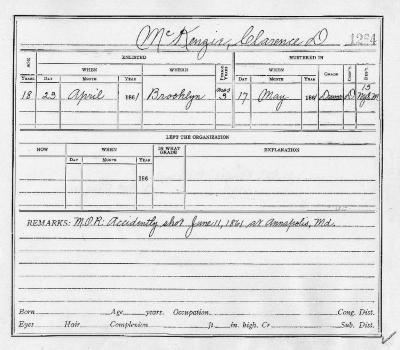 Mc Kenzie, Clarence D 1284
AGE ENLISTED PERIOD YEARS MUSTERED IN
WHEN WHERE WHEN GRADE COMP'Y REG'T
YEARS DAY MONTH YEAR DAY MONTH YEAR
18 23 April 1861 Brooklyn 3 17 May 1861 D 13
LEFT THE ORGANIZATION
HOW WHEN IN WHAT GRADE EXPLANATION
DAY MONTH YEAR
186
REMARKS: M.O.R: Accidently shot June 11, 1861 at Annapolis, Md.
Born Age years. Occupation. Cong. Dist.
Eyes Hair Complexion ft in. high. Cr Sub. Dist.